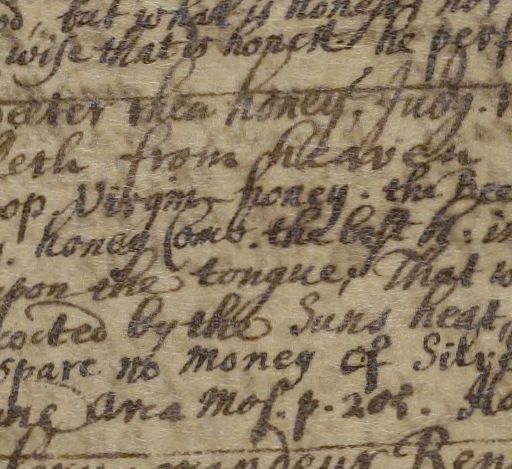 but what is honest, nor
wise that is honest he perf
eater then honey, Judg.
leth from heaven
op. Virgin honey. the Bee
. honey Comb. the best h. in
upon the tongue, That w
cocted by the Suns heat,
spare no money of Silve
Arca Mos. p. 205. Ho